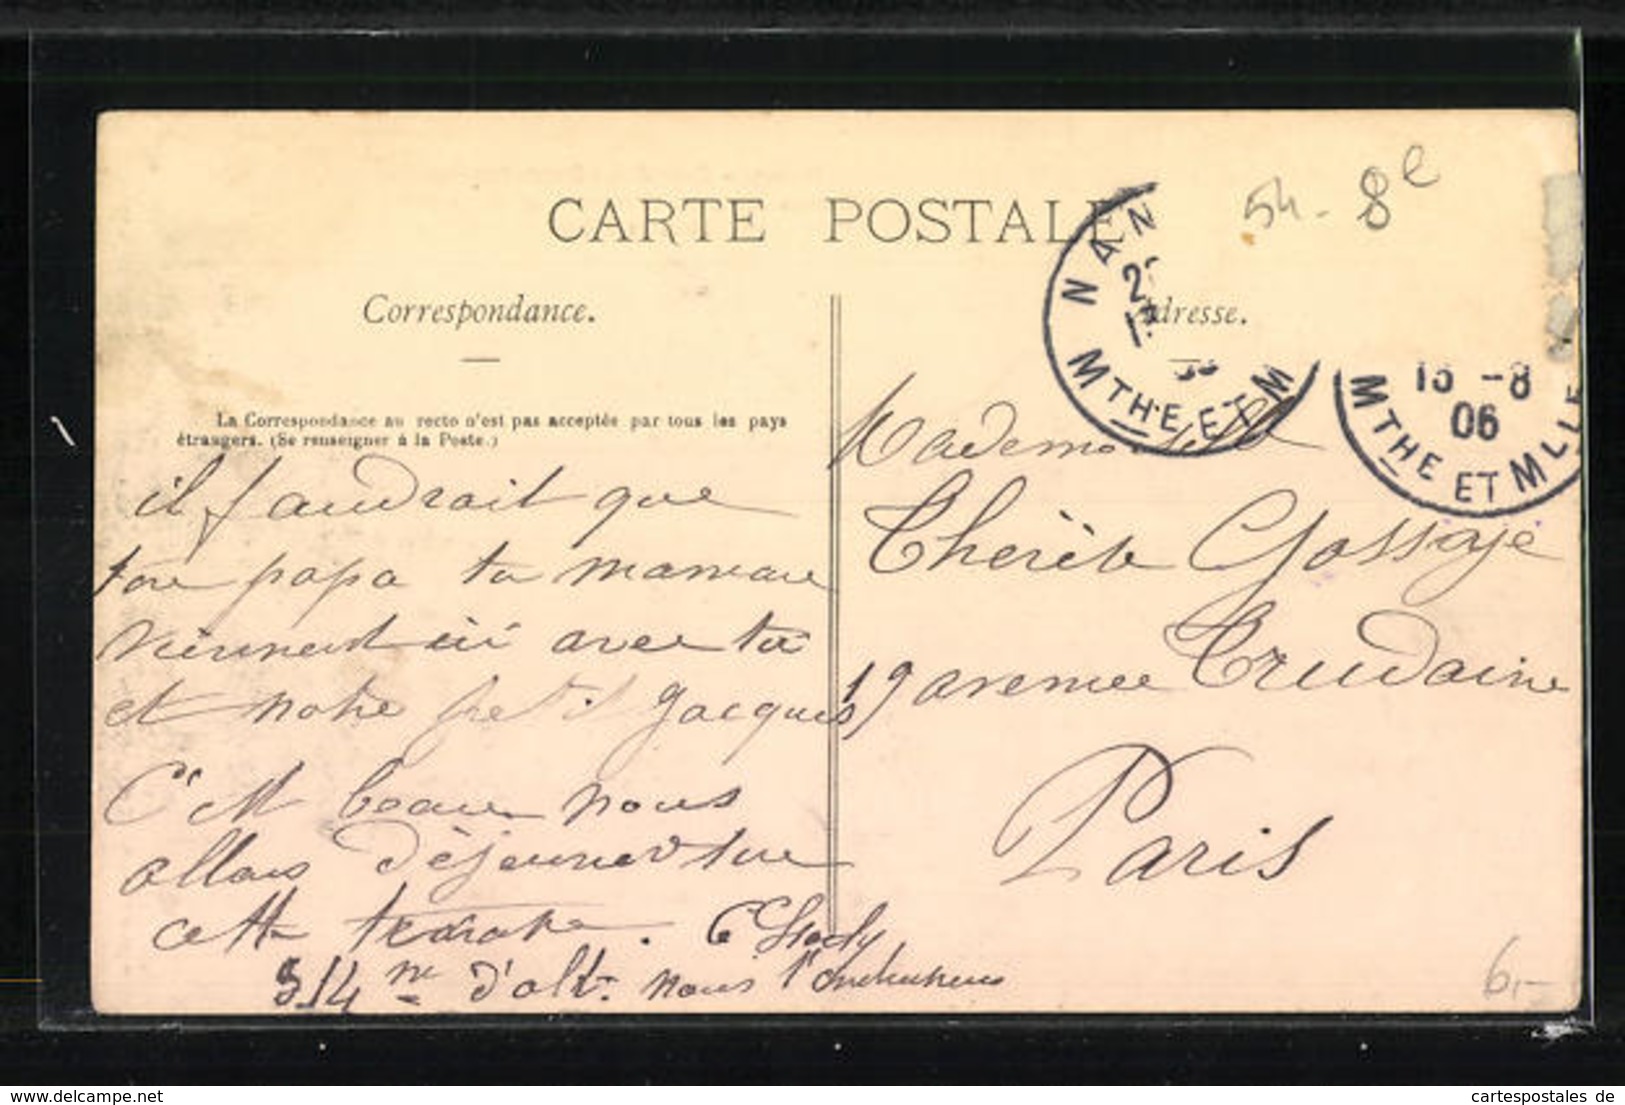 CARTE POSTALE
54 - 8e
Correspondance.
Adresse.
NAN
MTHE ET M
13 -8
06
MTHE ET MLLE
La Correspondance au recto n'est pas acceptée par tous les pays
étrangers. (Se renseigner à la Poste.)
il faudrait que
ton papa ta maman
viennent ici avec toi
et notre petit Jacques
C'est beau nous
allons déjeuner sur
cette terrasse.
514 m d'alt. nous
Mademoiselle
Thérèse Gossaye
19 avenue Trudaine
Paris
6,-
www.delcampe.net
cartespostales de